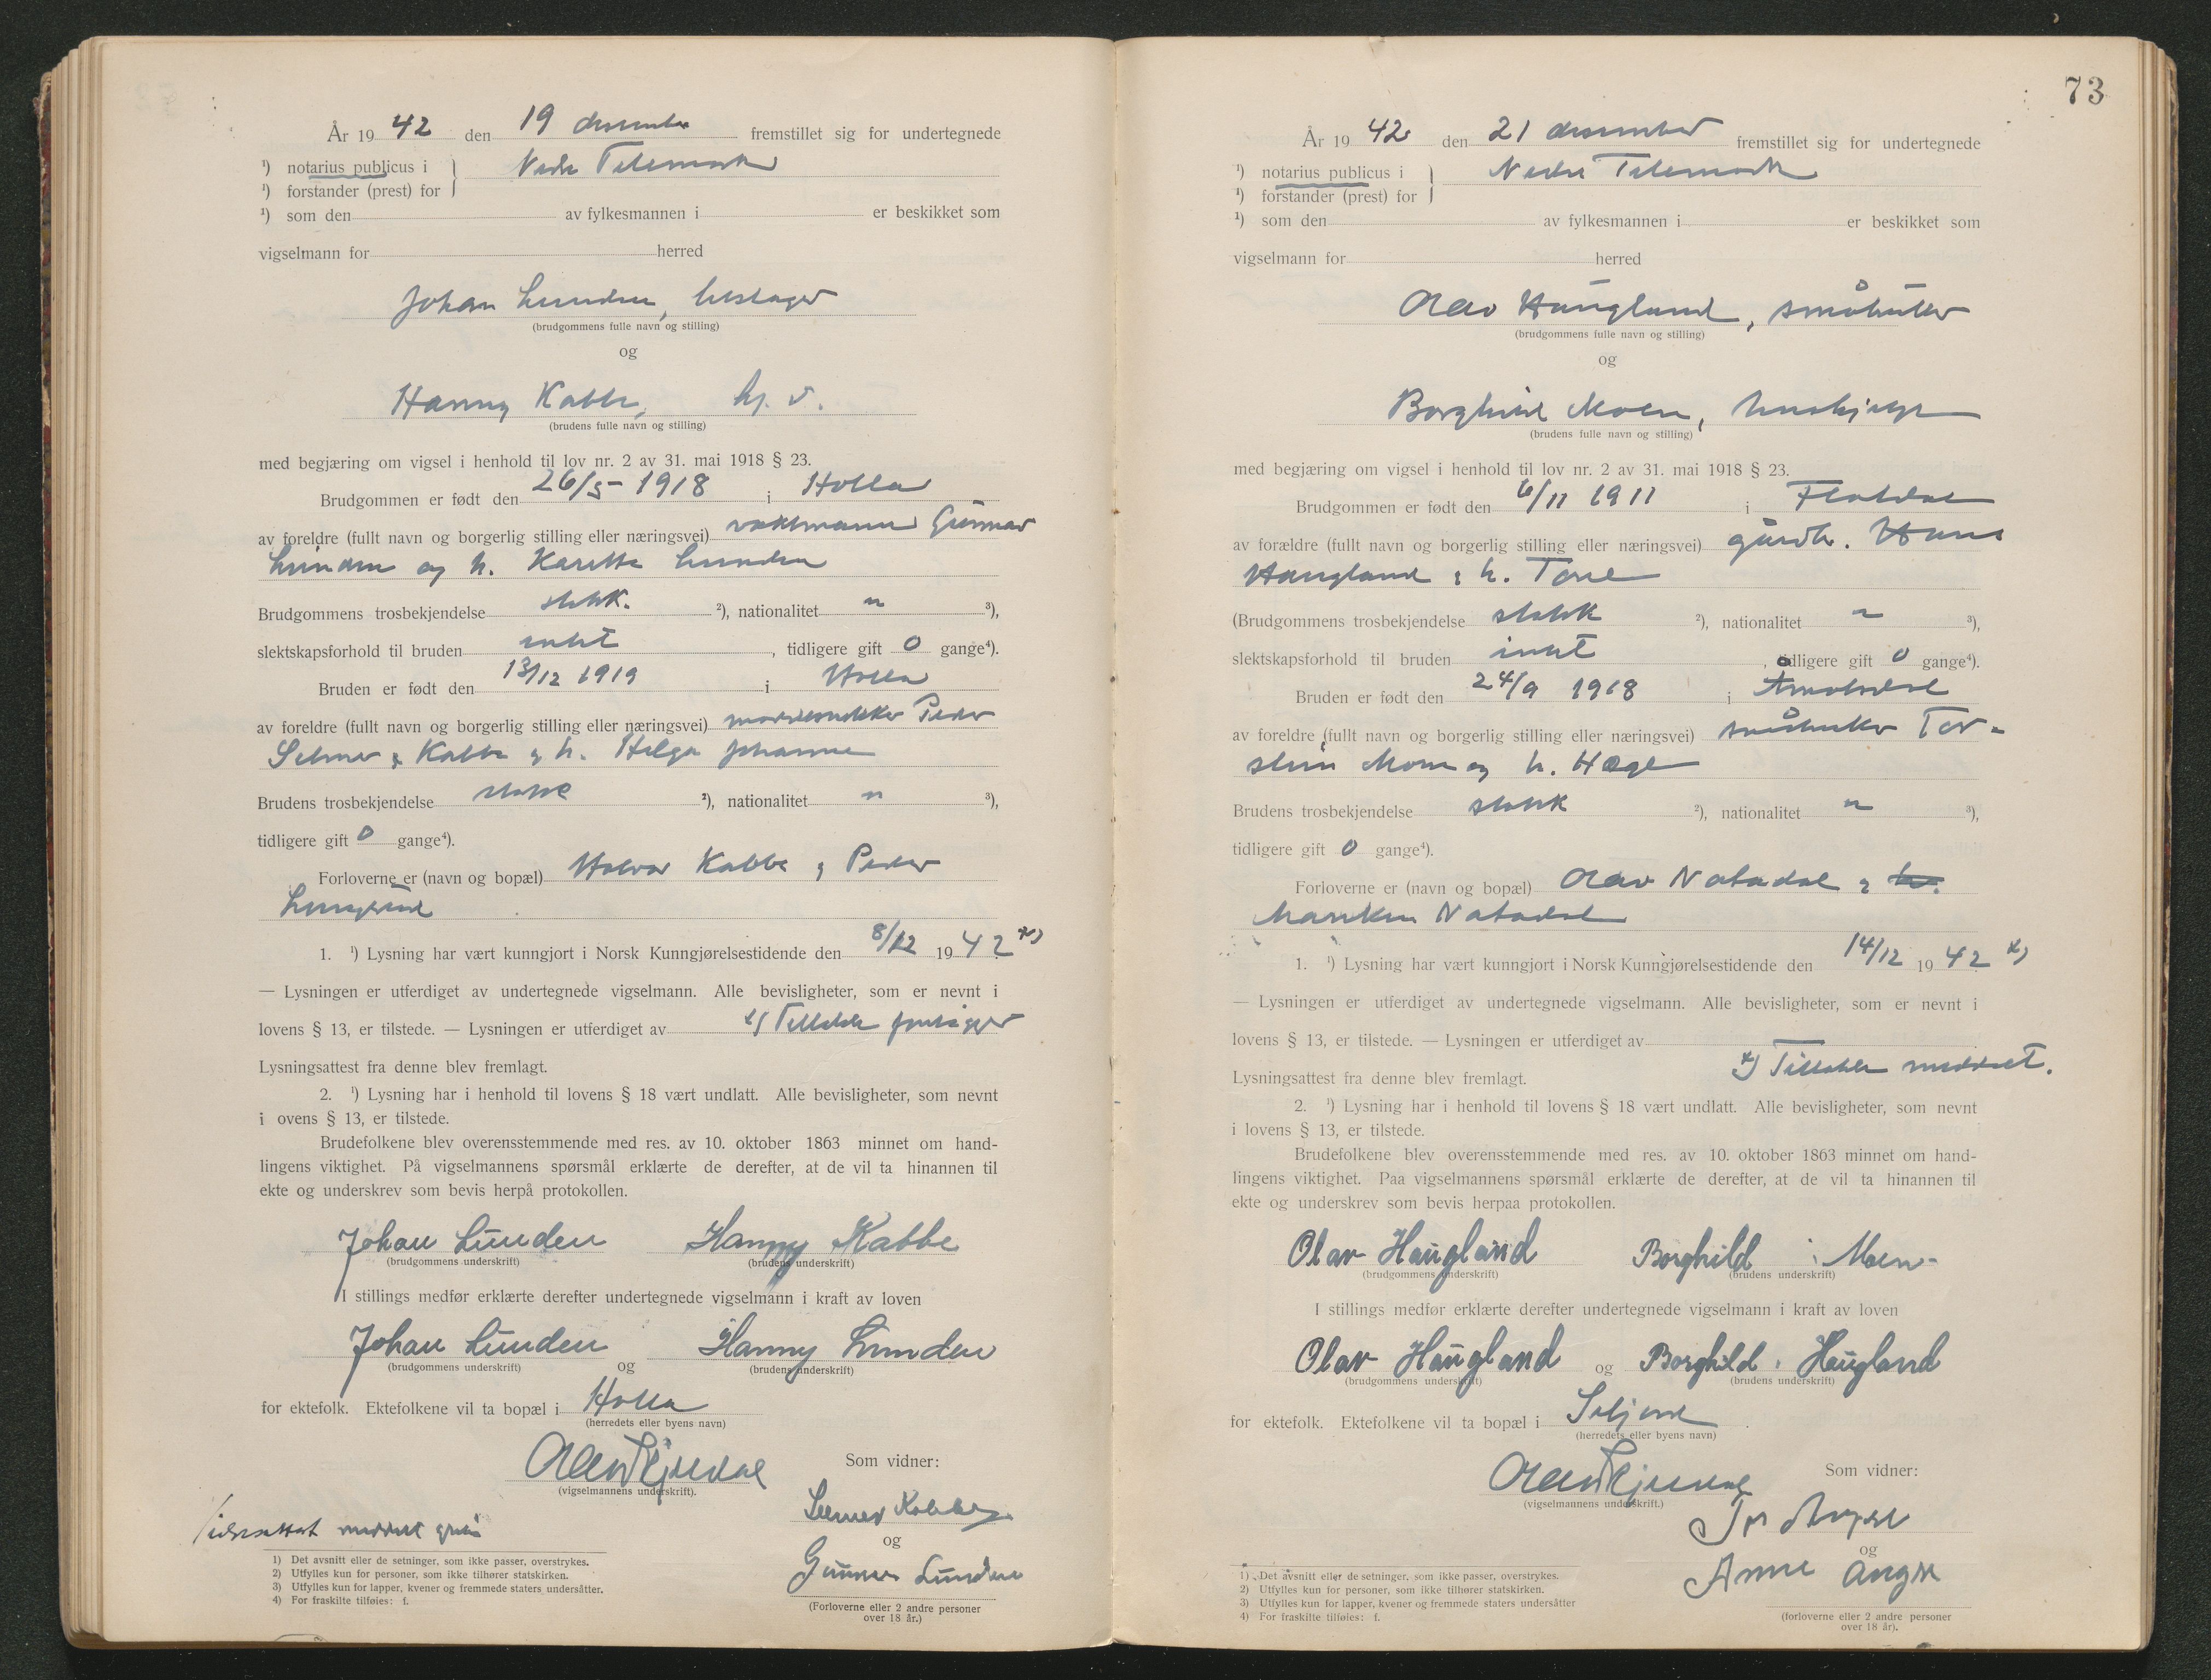 År 19 42 den 19 desember fremstillet sig for undertegnede
¹) notarius publicus i } Nedre Telemark
¹) forstander (prest) for
¹) som den av fylkesmannen i er beskikket som
vigselmann for herred
Johan Lunden,
(brudgommens fulle navn og stilling)
og
Hanny Kabbe,
(brudens fulle navn og stilling)
med begjæring om vigsel i henhold til lov nr. 2 av 31. mai 1918 § 23.
Brudgommen er født den 26/5 1918 i Holla
av foreldre (fullt navn og borgerlig stilling eller næringsvei) vaktmann Gunnar
Lunden og h. Lunden
Brudgommens trosbekjendelse statsk. ²), nationalitet n ³),
slektskapsforhold til bruden intet , tidligere gift 0 gange⁴).
Bruden er født den 13/12 1919 i Holla
av foreldre (fullt navn og borgerlig stilling eller næringsvei) Peder
Selmer Kabbe og h. Helga Johanne
Brudens trosbekjendelse statsk ²), nationalitet n ³),
tidligere gift 0 gange⁴).
Forloverne er (navn og bopæl) Halvor Kabbe og Peder
1. ¹) Lysning har vært kunngjort i Norsk Kunngjørelsestidende den 8/12 19 42 x)
— Lysningen er utferdiget av undertegnede vigselmann. Alle bevisligheter, som er nevnt i
lovens § 13, er tilstede. — Lysningen er utferdiget av x) Tillatelse foreligger
Lysningsattest fra denne blev fremlagt.
2. ¹) Lysning har i henhold til lovens § 18 vært undlatt. Alle bevisligheter, som nevnt
i ovens § 13, er tilstede.
Brudefolkene blev overensstemmende med res. av 10. oktober 1863 minnet om hand-
lingens viktighet. På vigselmannens spørsmål erklærte de derefter, at de vil ta hinannen til
ekte og underskrev som bevis herpå protokollen.
Johan Lunden Hanny Kabbe
(brudgommens underskrift) (brudens underskrift)
I stillings medfør erklærte derefter undertegnede vigselmann i kraft av loven
Johan Lunden og Hanny Lunden
(brudgommens underskrift) (brudens underskrift)
for ektefolk. Ektefolkene vil ta bopæl i Holla
(herredets eller byens navn)
Som vidner:
(vigselmannens underskrift).
Selmer Kabbe
og
Gunnar Lunden
(Forloverne eller 2 andre personer
over 18 år.)
meddelt
1) Det avsnitt eller de setninger, som ikke passer, overstrykes.
2) Utfylles kun for personer, som ikke tilhører statskirken.
3) Utfylles kun for lapper, kvener og fremmede staters undersåtter.
4) For fraskilte tilføies: f.
73
År 19 42 den 21 desember fremstillet sig for undertegnede
¹) notarius publicus i } Nedre Telemark
¹) forstander (prest) for
¹) som den av fylkesmannen i er beskikket som
vigselmann for herred
Olav Haugland, småbruker
(brudgommens fulle navn og stilling)
og
Borghild Moen, hushjelp
(brudens fulle navn og stilling)
med begjæring om vigsel i henhold til lov nr. 2 av 31. mai 1918 § 23.
Brudgommen er født den 6/11 1911 i Flatdal
av forældre (fullt navn og borgerlig stilling eller næringsvei) gårdbr. Hans
Haugland og h. Tone
(Brudgommens trosbekjendelse statsk ²), nationalitet n ³),
slektskapsforhold til bruden intet , tidligere gift 0 gange⁴).
Bruden er født den 24/9 1918 i
av foreldre (fullt navn og borgerlig stilling eller næringsvei) småbruker Tor-
stein Moen og h. Hæge
Brudens trosbekjendelse statsk ²), nationalitet n ³),
tidligere gift 0 gange⁴).
Forloverne er (navn og bopæl) Olav Natadal og
Natadal
1. ¹) Lysning har vært kunngjort i Norsk Kunngjørelsestidende den 14/12 19 42 x)
— Lysningen er utferdiget av undertegnede vigselmann. Alle bevisligheter, som er nevnt i
lovens § 13, er tilstede. — Lysningen er utferdiget av
Lysningsattest fra denne blev fremlagt. x) Tillatelse meddelt.
2. ¹) Lysning har i henhold til lovens § 18 vært undlatt. Alle bevisligheter, som nevnt
i lovens § 13, er tilstede.
Brudefolkene blev overensstemmende med res. av 10. oktober 1863 minnet om hand-
lingens viktighet. Paa vigselmannens spørsmål erklærte de derefter, at de vil ta hinannen til
ekte og underskrev som bevis herpaa protokollen.
Olav Haugland Borghild Moen
(brudgommens underskrift) (brudens underskrift)
I stillings medfør erklærte derefter undertegnede vigselmann i kraft av loven
Olav Haugland og Borghild Haugland
(brudgommens underskrift) (brudens underskrift)
for ektefolk. Ektefolkene vil ta bopæl i Seljord
(herredets eller byens navn)
Som vidner:
(vigselmannens underskrift.)
og
Anne
(forloverne eller 2 andre personer
over 18 år).
1) Det avsnitt eller de setninger, som ikke passer, overstrykes.
2) Utfylles kun for personer, som ikke tilhører statskirken.
3) Utfylles kun for lapper, kvener og fremmede staters undersåtter
4) For fraskilte tilføies: f.